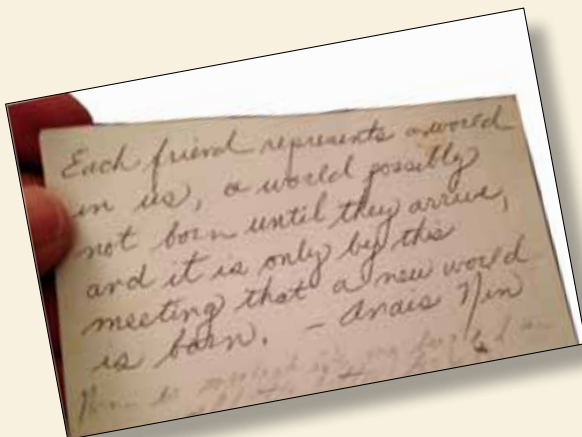 Each friend represents a world
in us, a world possibly
not born until they arrive,
and it is only by this
meeting that a new world
is born. - Anais Nin